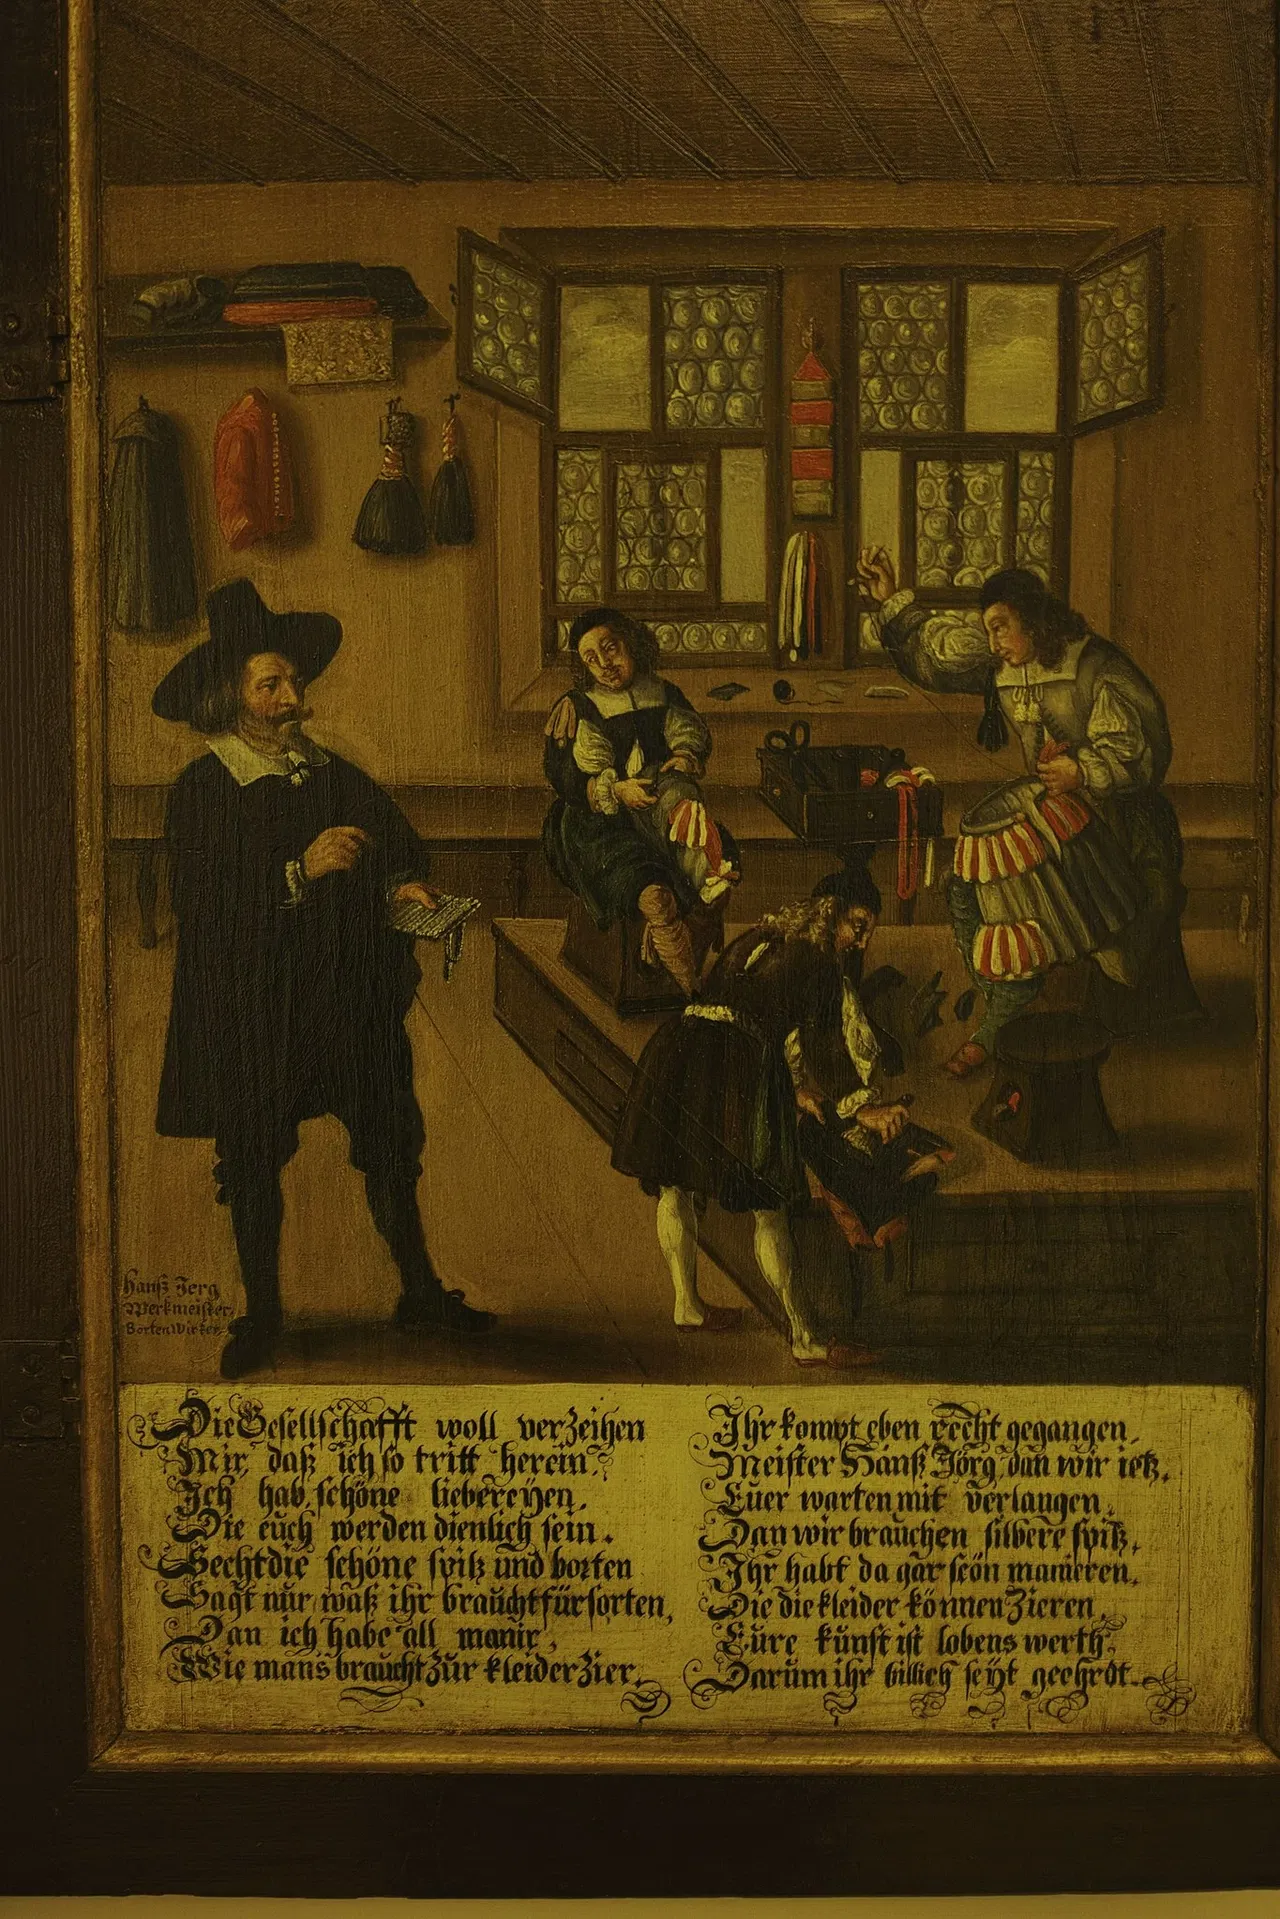 Hanß Jerg
Werkmeister
BortenWirker
Die Gesellschafft woll verzeihen
Mir, daß ich so tritt herein.
Ich hab schöne liebereyen.
Die euch werden dienlich sein.
Secht die schöne spitz und borten
Sagt nur waß ihr braucht für sorten,
Dan ich habe all manir,
Wie mans braucht Zur kleider Zier.
Ihr kompt eben recht gegangen.
Meister Hanß Jörg, dan wir ietz.
Euer warten mit verlangen.
Dan wir brauchen silbere spitz.
Ihr habt da gar scön manieren.
Die die kleider können Zieren.
Eure kunst ist lobens werth.
Darum ihr billich seyt geehrdt.